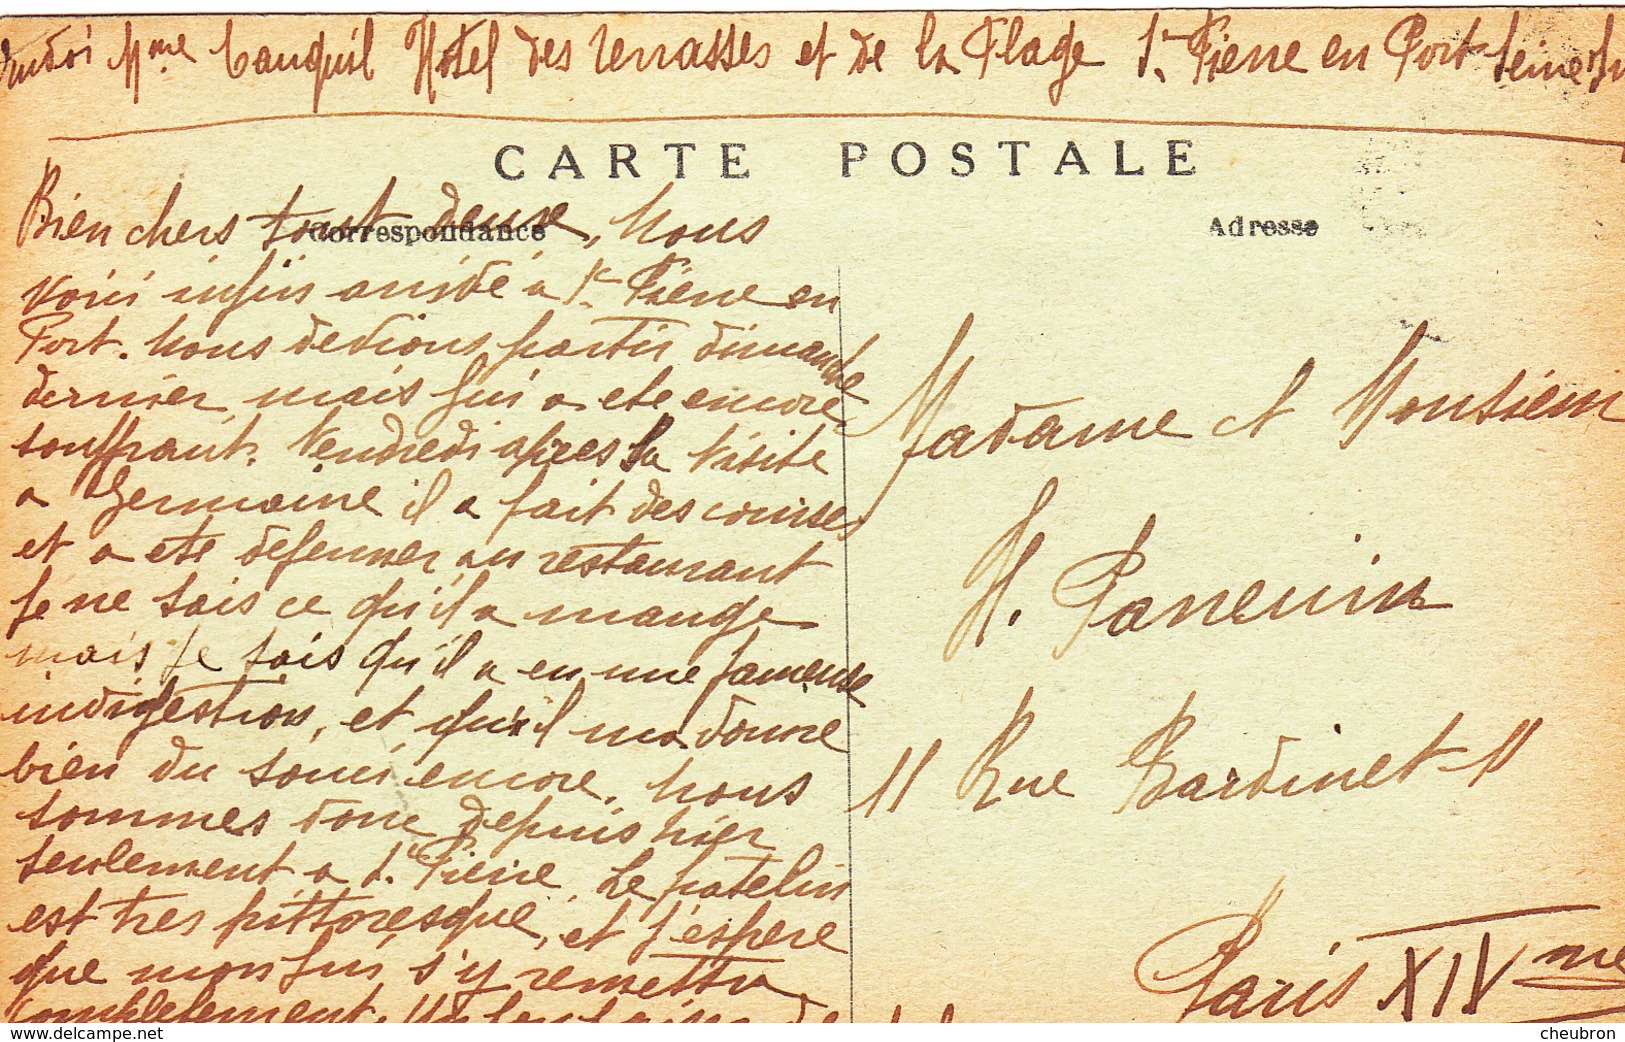 Mme Cauquil Hotel des Terrasses et de la Plage St. Pierre en Port Seine Inf
CARTE POSTALE
Correspondance
Adresse
Bien chers tout deux, Nous
voici enfin arrivé a St. Pierre en
Port. Nous devions partir dimanche
dernier, mais Jui a ete encore
souffrant. Vendredi apres la visite
a Germaine il a fait des courses
et a ete dejeuner au restaurant
Je ne sais ce qu'il a mange
mais je sais qu'il a eu une fameuse
indigestion, et qu'il m'a donne
bien du souci encore. Nous
sommes donc depuis hier
seulement a St. Pierre. Le patelin
est tres pittoresque, et j'espere
que mon Jui s'y remettra
completement.
Madame et Monsieur
H. Panevin
11 Rue Bardinet 11
Paris XIVme
www.delcampe.net
cheubron